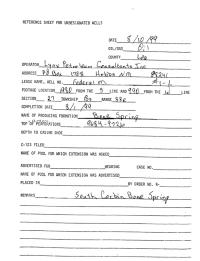 REFERENCE SHEET FOR UNDESIGNATED WELLS
DATE 8/10/99
OIL/GAS Oil
COUNTY Lea
OPERATOR Lynx Petroleum Consultants Inc
ADDRESS PO Box 1708 Hobbs NM 88241
LEASE NAME, WELL NO. Federal M
FOOTAGE LOCATION 1980 FROM THE S LINE AND 990 FROM THE W LINE
SECTION 27 TOWNSHIP 18s RANGE 33e
COMPLETION DATE 8/1/99
NAME OF PRODUCING FORMATION Bone Spring
TOP OF PERFORATIONS
DEPTH TO CASING SHOE
C-123 FILED
NAME OF POOL FOR WHICH EXTENSION WAS ASKED
ADVERTISED FOR HEARING CASE NO.
NAME OF POOL FOR WHICH EXTENSION WAS ADVERTISED
PLACED IN BY ORDER NO. R-
REMARKS South Corbin Bone Spring